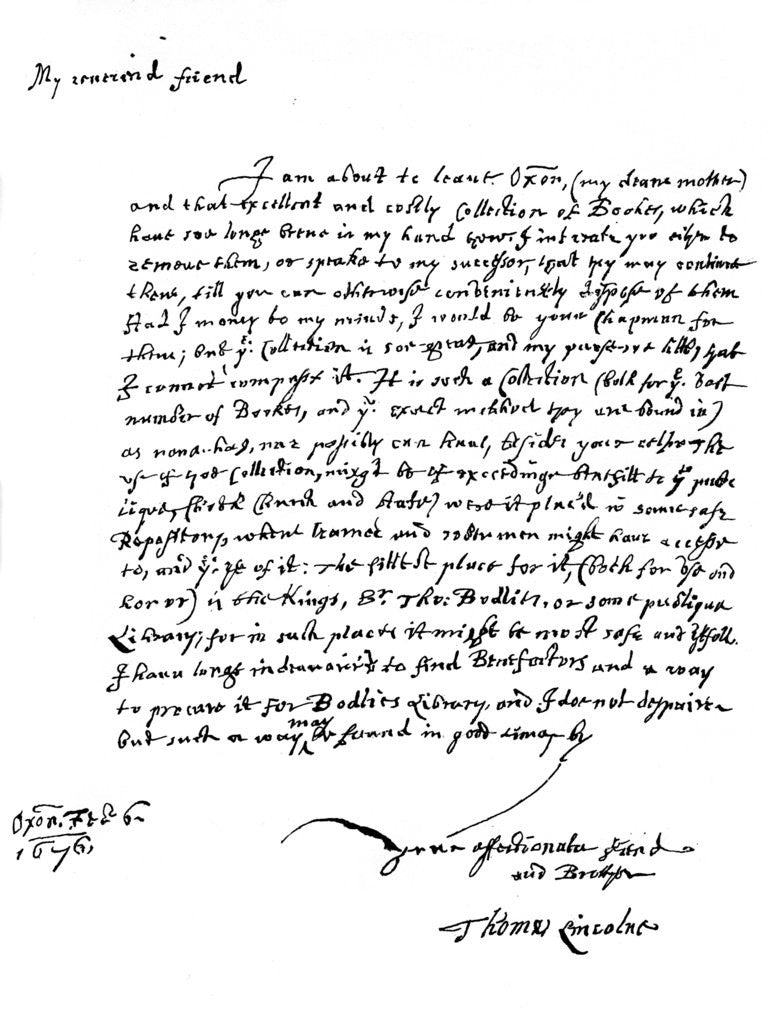 My reverend friend
I am about to leave Oxon, (my deare mother)
and that excellent and costly Collection of Bookes, which
have soe longe beene in my hand now, I intreate you either to
remove them, or speake to my successor, that they may continue
there, till you can otherwise conveniently dispose of them
Had I money to my minde, I would be your Chapman for
them; but yͤ Collection is soe great, and my purse soe little, that
I cannot compasse it. It is such a Collection (both for yͤ vast
number of Bookes, and yͤ exact method they are bound in)
as none has, nor possibly can have, besides your selfe. The
use of that Collection, might be of exceedinge benefitt to yͤ pub-
lique, (both Church and State) were it plac'd in some safe
Repository, where learned and sober men might have accesse
to, and yͤ use of it: The fittest place for it, (both for use and
honor) is the Kings, Sr. Tho: Bodlies, or some publique
Library; for in such places it might be most safe and usefull.
I have longe indeavoured to find Benefactors and a way
to procure it for Bodlies Library, and I doe not despaire
but such a way may be found in good time by
Oxon. Feb 6
1676.
Your affectionate friend
and Brother
Thomas Lincolne